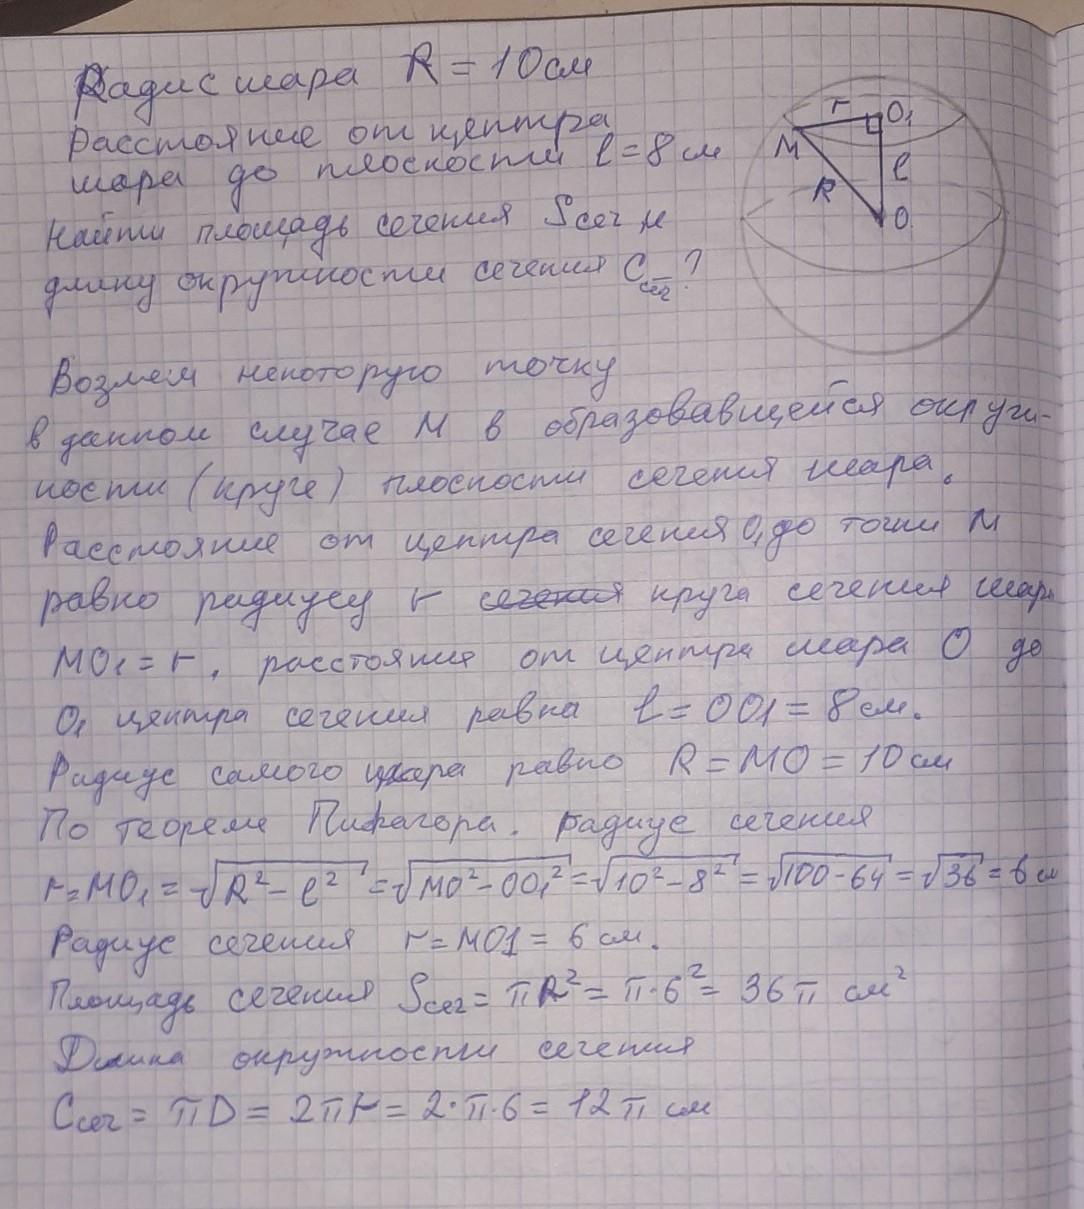 Радиус шара R = 10 см
Расстояние от центра
шара до плоскости l = 8 см
Найти площадь сечения Sсеч и
длину окружности сечения Cсеч = ?
r O₁
M l
R O
Возмем некоторую точку
в данном случае M в образовавшейся окруж-
ности (круге) плоскости сечения шара.
Расстояние от центра сечения O₁ до точки M
равно радиусу r сечения круга сечения шара
MO₁ = r, расстояния от центра шара O до
O₁ центра сечения равна l = OO1 = 8 см.
Радиус самого шара равно R = MO = 10 см
По теореме Пифагора. Радиус сечения
r = MO₁ = √(R² - l²) = √(MO² - OO₁²) = √(10² - 8²) = √(100 - 64) = √36 = 6 см
Радиус сечения r = MO1 = 6 см.
Площадь сечения Sсеч = πR² = π·6² = 36π см²
Длина окружности сечения
Cсеч = πD = 2πr = 2·π·6 = 12π см